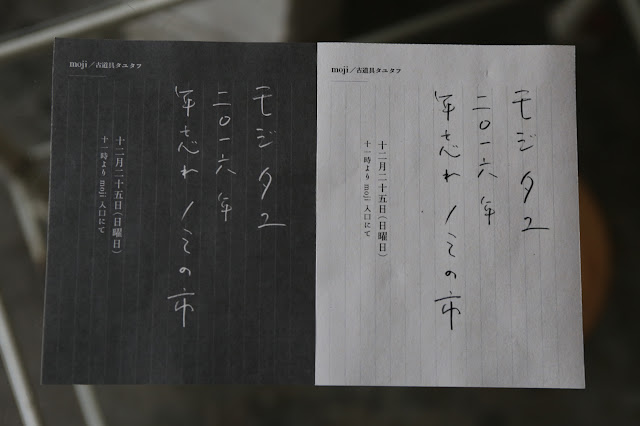 moji／古道具タユタフ
モジタユ
二〇一六年
年忘れノミの市
十二月二十五日（日曜日）
十一時より moji 入口にて
moji／古道具タユタフ
モジタユ
二〇一六年
年忘れノミの市
十二月二十五日（日曜日）
十一時より moji 入口にて